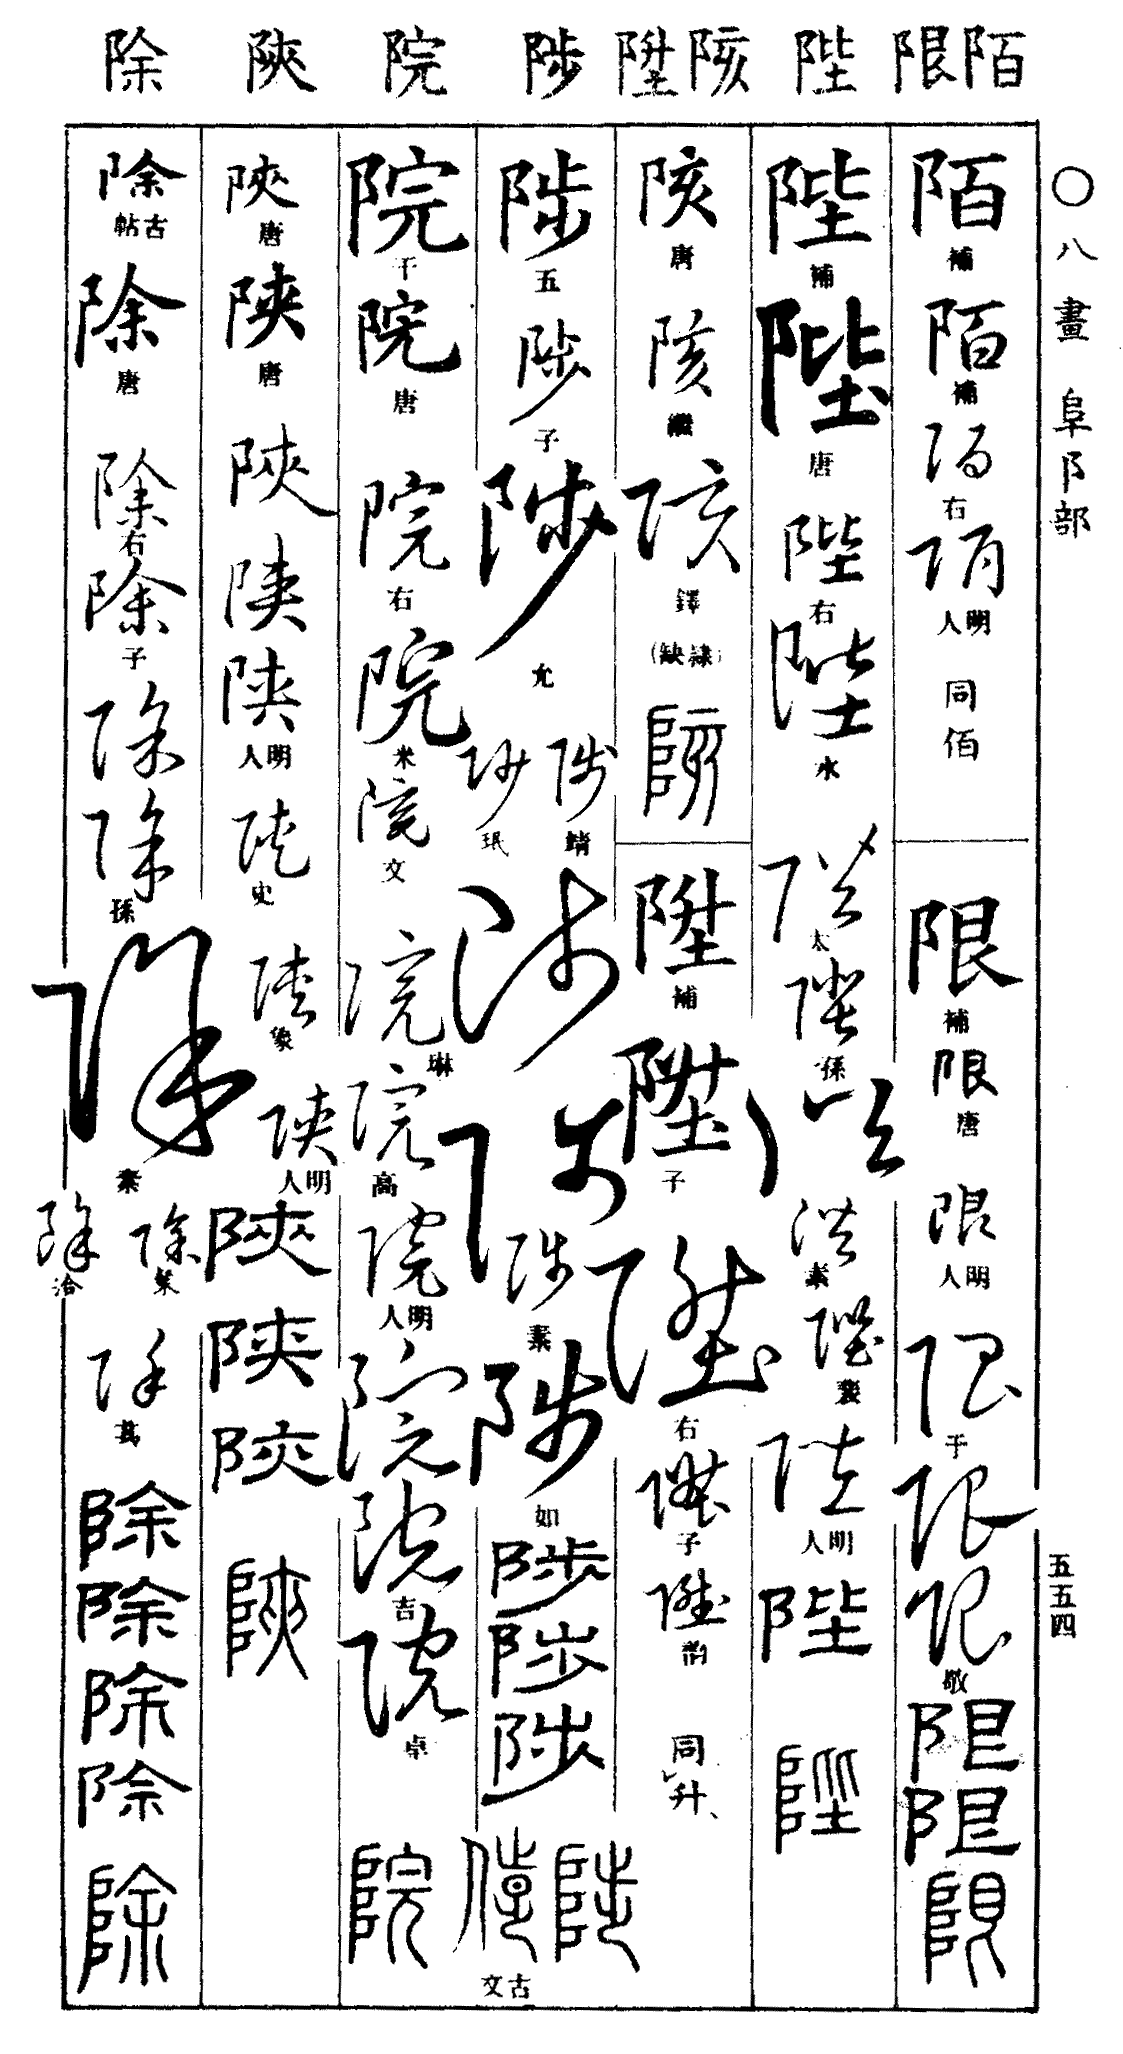 除 陝 院 陟 陞 陔 陛 限 陌
〇八畫 阜阝部
五五四
陌 補
陌 補
陌 右
陌 明人
同佰
限 補
限 唐
限 明人
限 于
限
限 敬
限
限
限
陛 補
陛 唐
陛 右
陛 水
陛 太
陛 孫
陛
陛 素
陛 襲
陛 明人
陛
陛
陔 唐
陔 繼
陔 鐸
（隸缺）
陔
陞 補
陞 子
陞 右
陞 子
陞 韵
同升
陟 五
陟 子
陟 允
陟 鯖
陟 珉
陟
陟
陟 素
陟 如
陟
陟
陟
陟
陟 古文
院 干
院 唐
院 右
院 米
院 文
院 琳
院 高
院 明人
院
院 吉
院 卓
院
陝 唐
陝 唐
陝
陝
陝 明人
陝 史
陝 象
陝 明人
陝
陝
陝
陝
除 古帖
除 唐
除 右
除 子
除
除 孫
除 素
除 葉
除 洽
除 萬
除
除
除
除
除